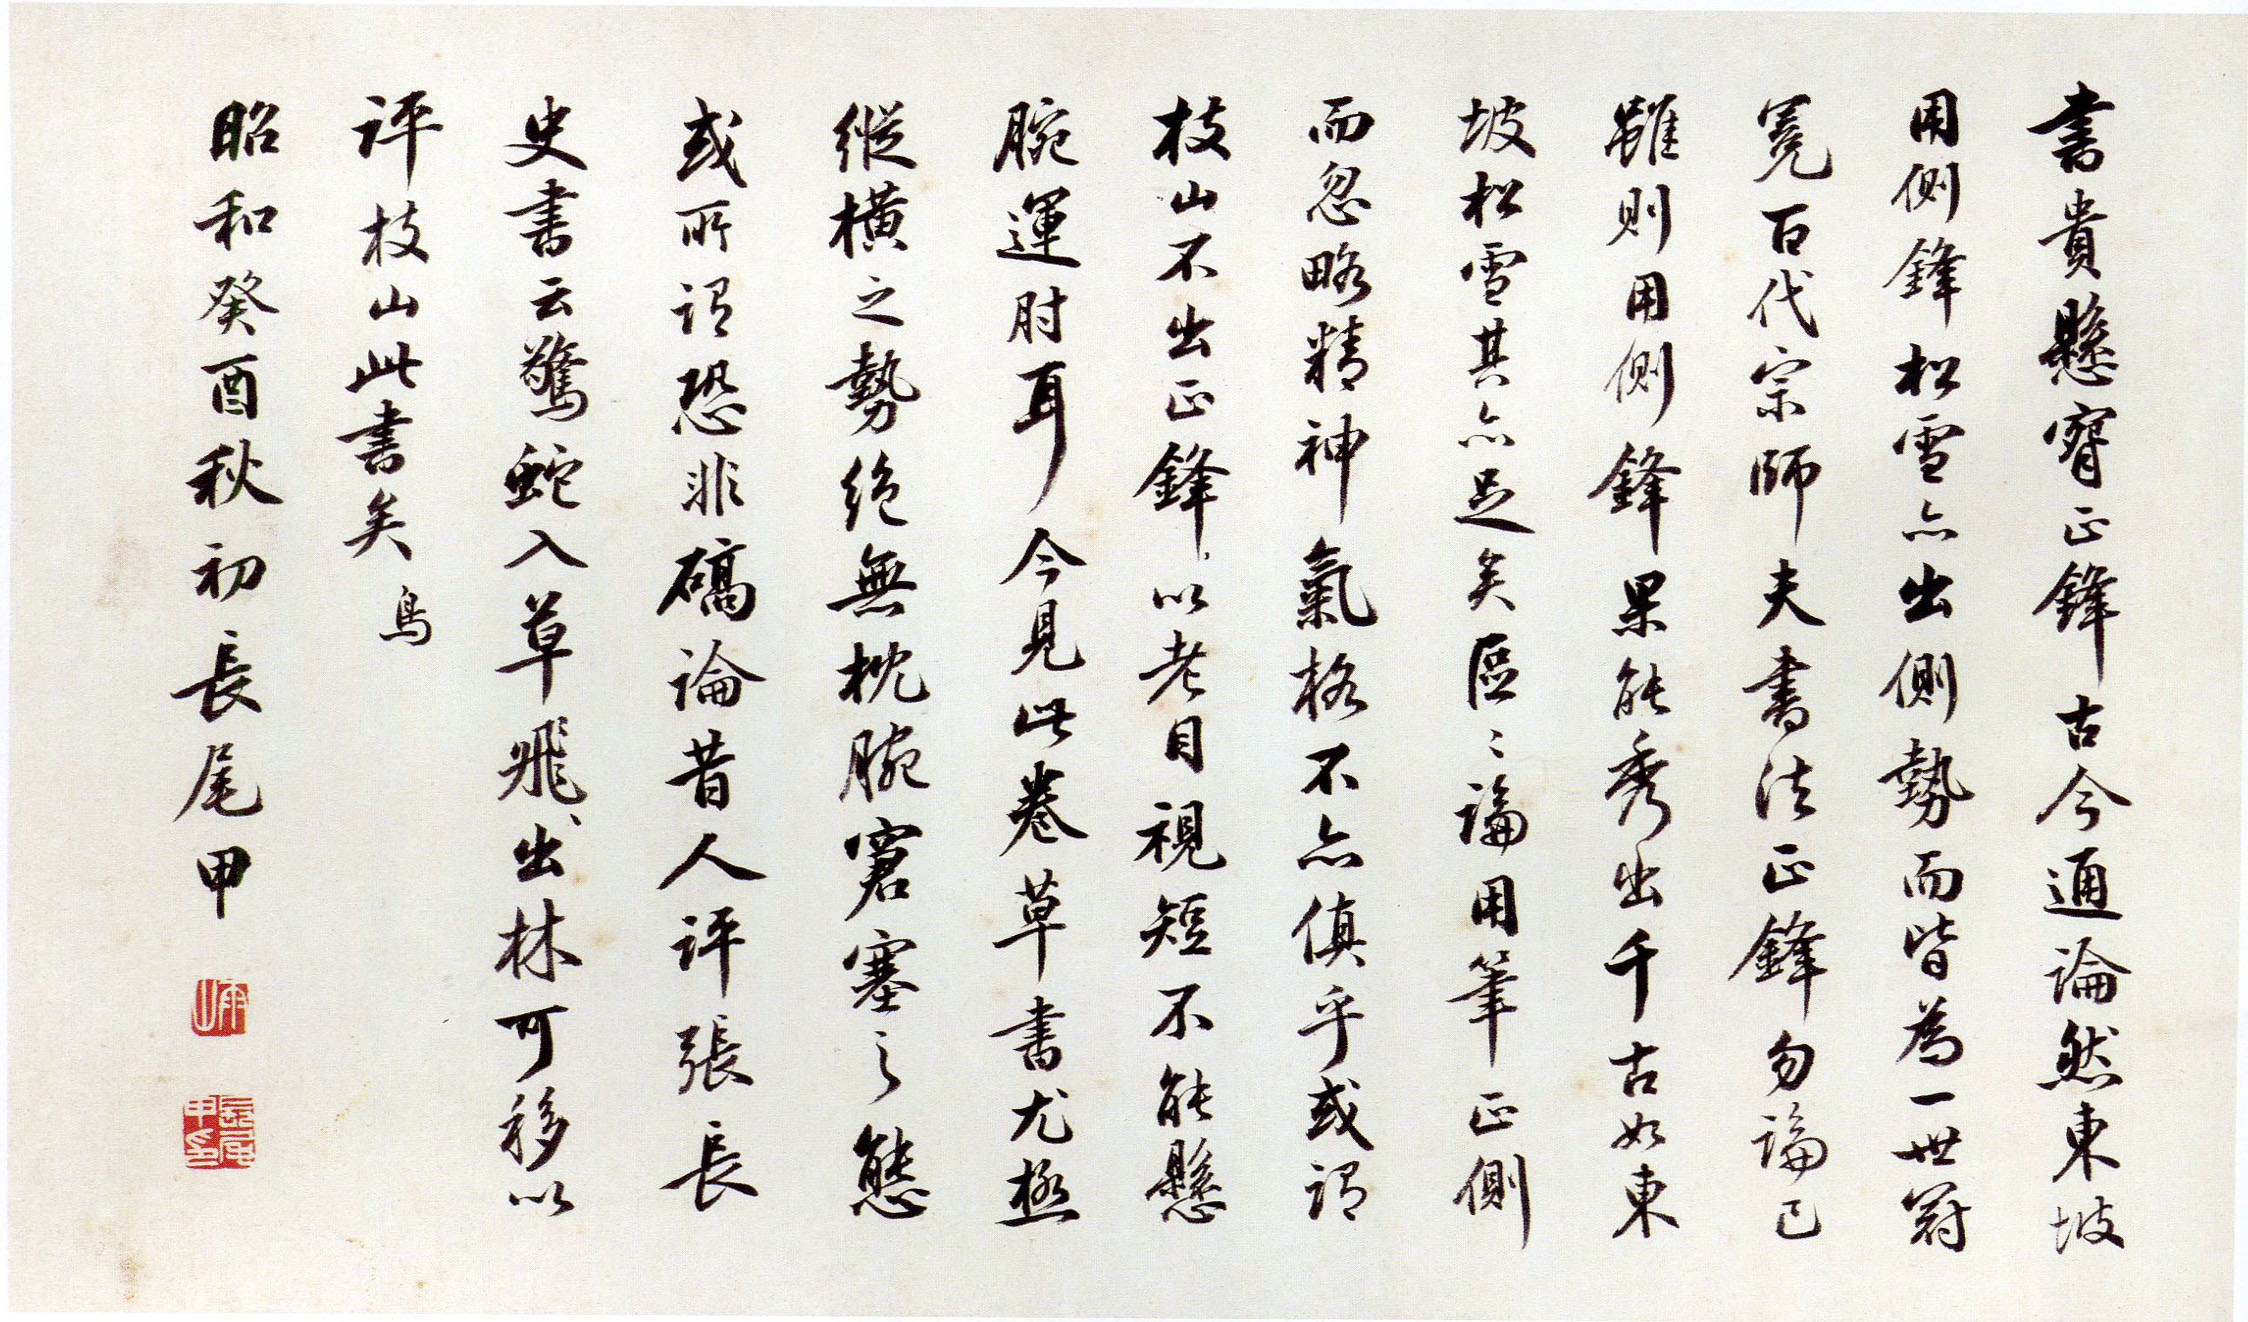 書貴懸臂正鋒古今通論然東坡
用側鋒松雪亦出側勢而皆為一世冠
冕百代宗師夫書法正鋒勿論已
雖則用側鋒果能秀出千古如東
坡松雪其亦足矣區〻論用筆正側
而忽略精神氣格不亦傎乎或謂
枝山不出正鋒以老目視短不能懸
腕運肘耳今見此卷草書尤極
縱橫之勢絶無枕腕窘塞之態
或所謂恐非碻論昔人評張長
史書云驚蛇入草飛出林可移以
評枝山此書矣 鳥
昭和癸酉秋初長尾甲
雨山
長尾甲印